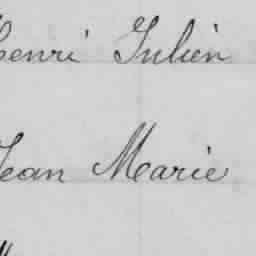 Henri Julien
Jean Marie